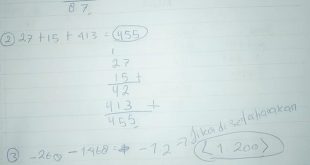 87
② 27 + 15 + 413 = 455
1
27
15 +
42
413 +
455
③ -260 - 1460 = -1.2 → jika di sederhanakan
(1.200)